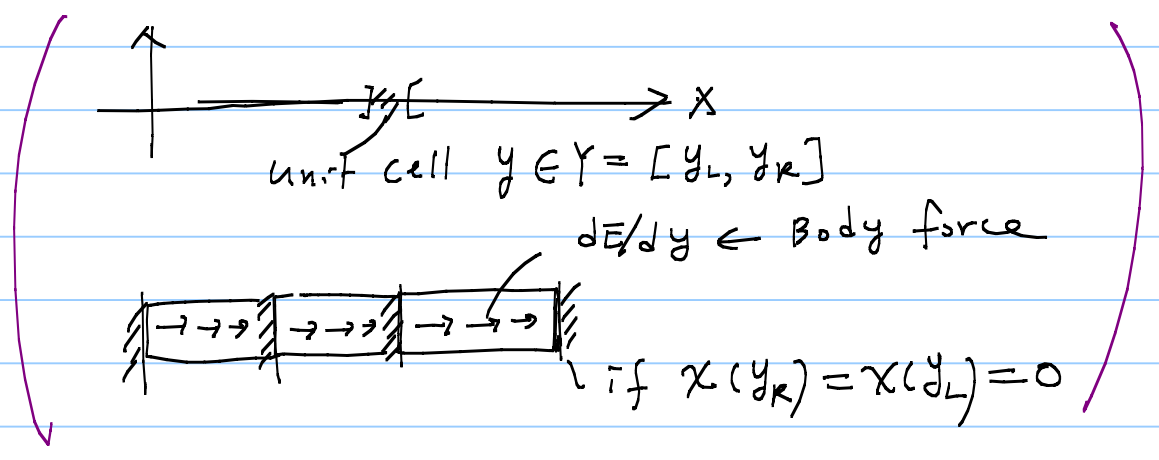 X
unit cell y ∈ Y = [y_L, y_R]
dE/dy ← Body force
if χ(y_R) = χ(y_L) = 0